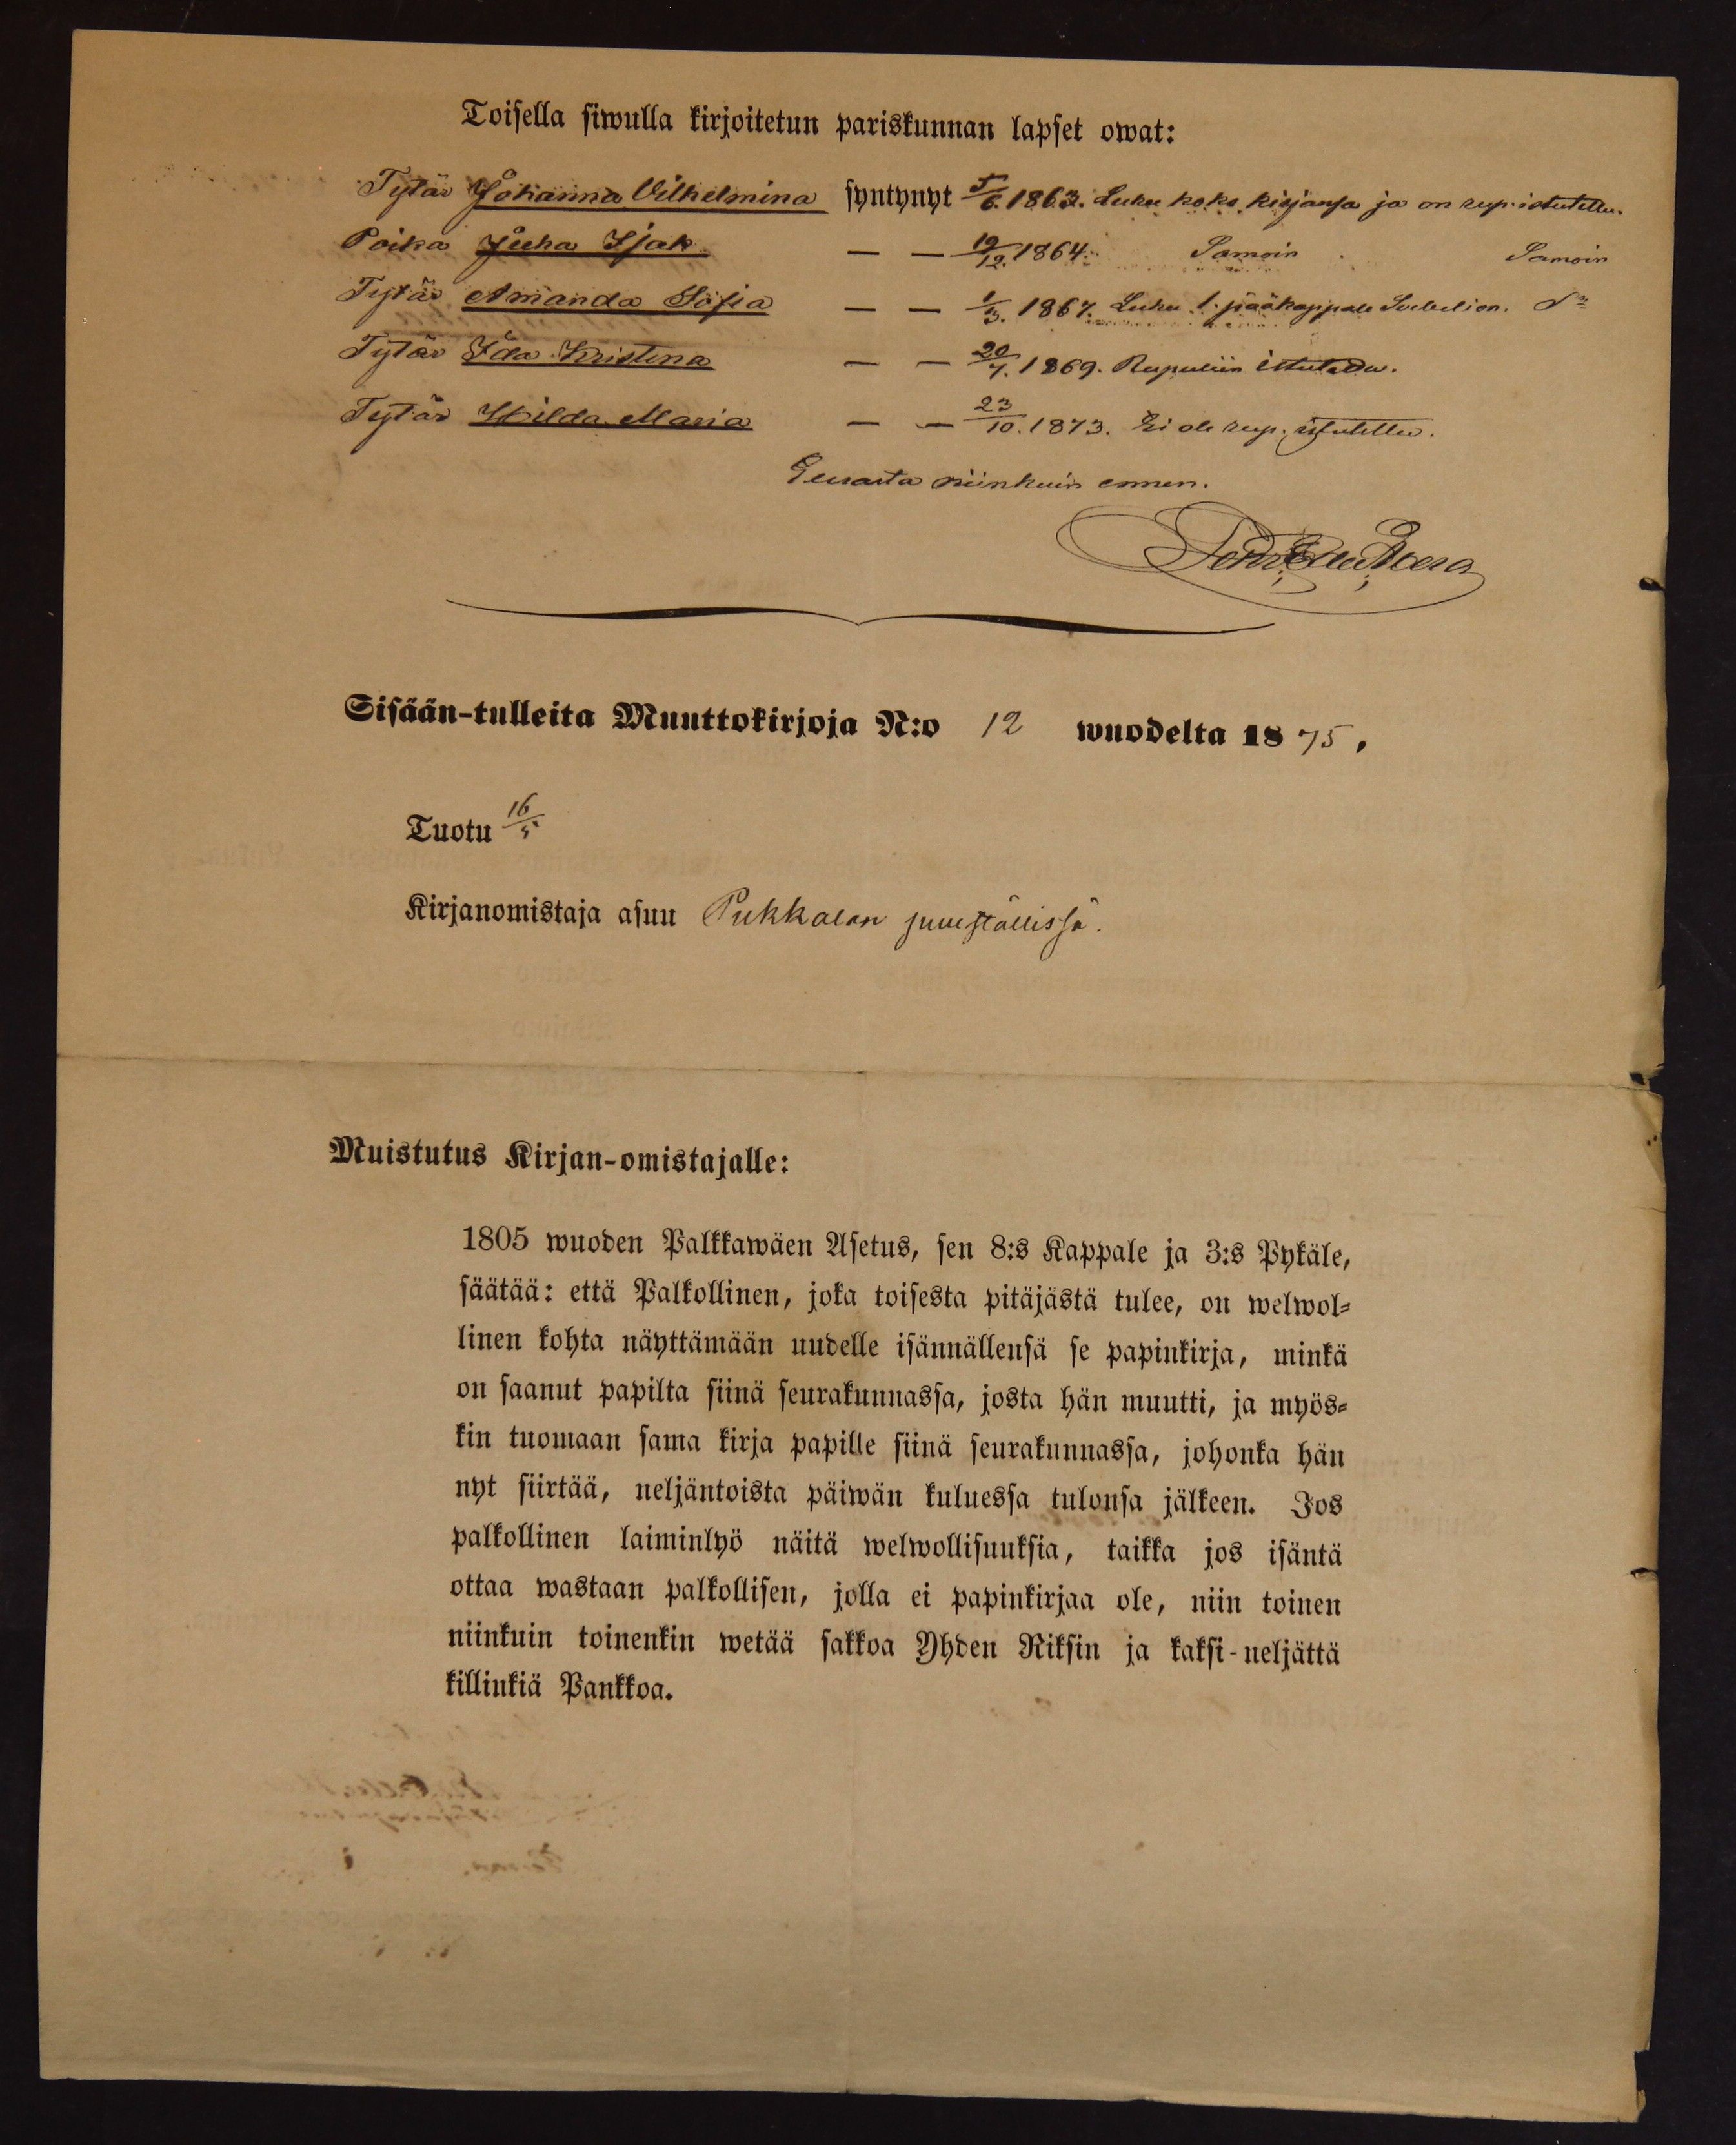 Toisella siwulla kirjoitetun pariskunnan lapset owat:
Tytär Johanna Vilhelmina syntynyt 5/6. 1863. Lukee koko kirjansa ja on rup. istutettu.
Poika Juha Isak — — 19/12. 1864. Samoin Samoin
Tytär Amanda Sofia — — 1/3. 1867. Lukee 1. pääkappale D:o
Tytär Ida Kristina — — 20/7. 1869. Rupuliin istutettu.
Tytär Hilda Maria — — 23/10. 1873. Ei ole rup. istutettu.
Eurasta niinkuin ennen.
Sisään-tulleita Muuttokirjoja N:o 12 wuodelta 1875,
Tuotu 16/5
Kirjanomistaja asuu Pukkalan puuställissä.
Muistutus Kirjan-omistajalle:
1805 wuoden Palkkawäen Asetus, sen 8:s Kappale ja 3:s Pykäle,
säätää: että Palkollinen, joka toisesta pitäjästä tulee, on welwol-
linen kohta näyttämään uudelle isännällensä se papinkirja, minkä
on saanut papilta siinä seurakunnassa, josta hän muutti, ja myös-
kin tuomaan sama kirja papille siinä seurakunnassa, johonka hän
nyt siirtää, neljäntoista päiwän kuluessa tulonsa jälkeen. Jos
palkollinen laiminlyö näitä welwollisuuksia, taikka jos isäntä
ottaa wastaan palkollisen, jolla ei papinkirjaa ole, niin toinen
niinkuin toinenkin wetää sakkoa Yhden Riksin ja kaksi-neljättä
killinkiä Pankkoa.